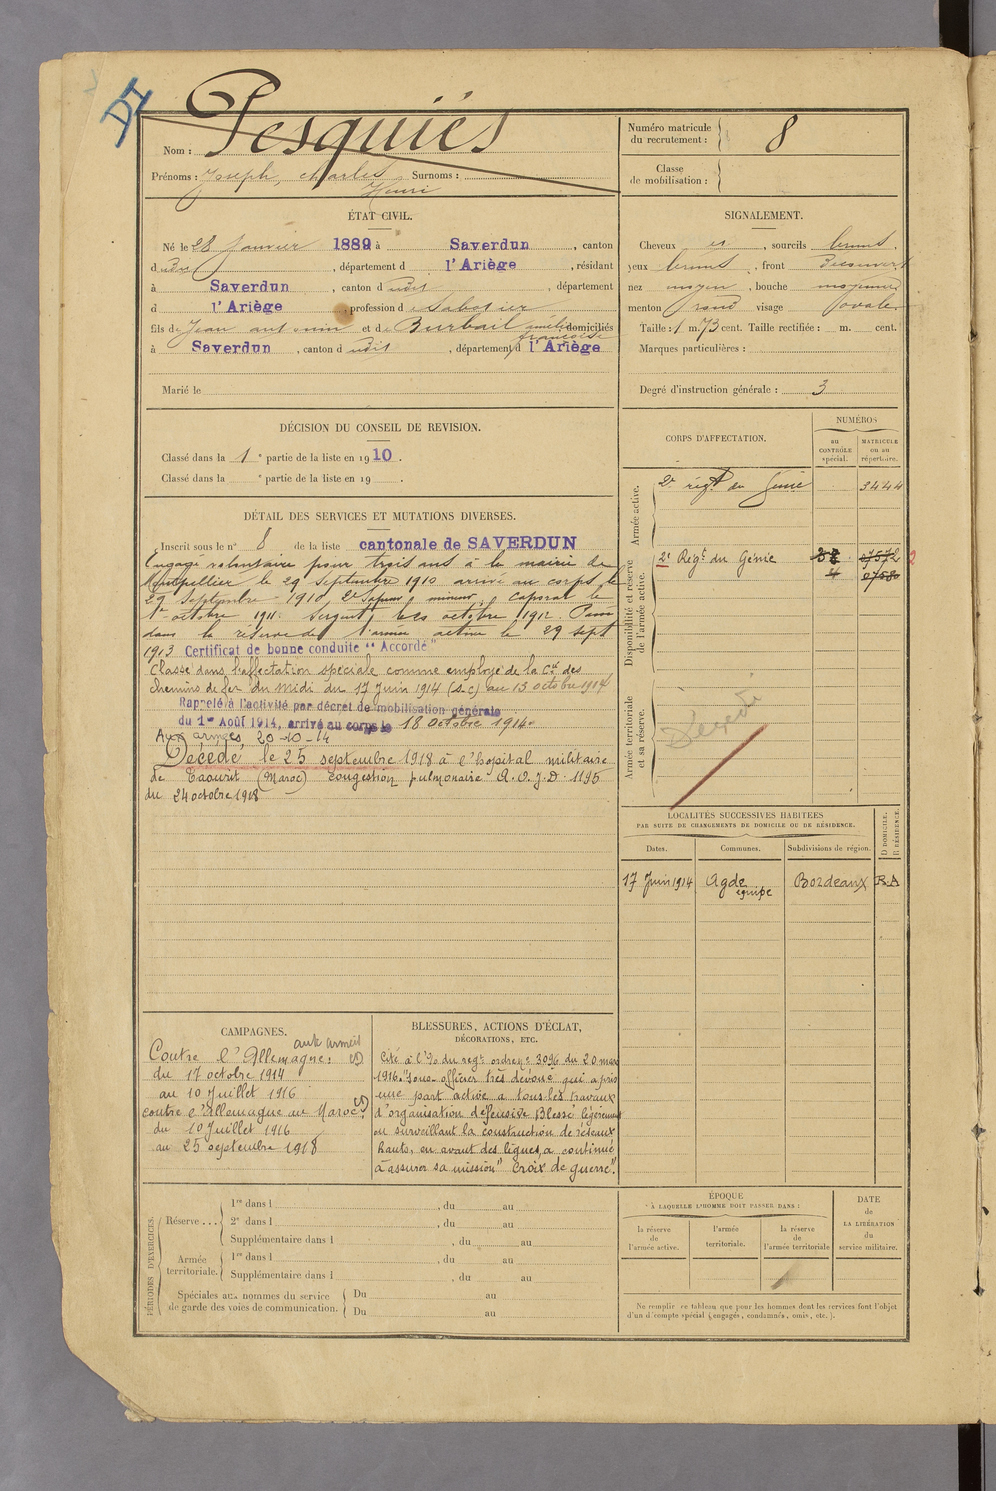 DI
Nom : Pesquiés
Prénoms : Joseph, charles Henri Surnoms :
Numéro matricule du recrutement : 8
Classe de mobilisation :
ÉTAT CIVIL.
Né le 28 Janvier 1889 à Saverdun, canton
dudit, département d l'Ariège, résidant
à Saverdun, canton dudit, département
d l'Ariège, profession de Sabotier
fils de Jean antonin et de Burbail amélie françoise domiciliés
à Saverdun, canton dudit, département d l'Ariège
Marié le
SIGNALEMENT.
Cheveux et, sourcils bruns.
yeux bruns, front Découvert
nez moyen, bouche moyenne
menton rond visage ovale.
Taille : 1 m. 73 cent. Taille rectifiée : m. cent.
Marques particulières :
Degré d'instruction générale : 3
DÉCISION DU CONSEIL DE REVISION.
Classé dans la 1e partie de la liste en 1910.
Classé dans la e partie de la liste en 19 .
CORPS D'AFFECTATION.
NUMÉROS
au CONTRÔLE spécial.
MATRICULE ou au répertoire.
Armée active.
2e régt du Génie 3444
Disponibilité et réserve de l'armée active.
2e Régt du Génie
Armée territoriale et sa réserve.
Décédé
DÉTAIL DES SERVICES ET MUTATIONS DIVERSES.
Inscrit sous le n° 8 de la liste cantonale de SAVERDUN
Engagé volontaire pour trois ans à la mairie de
Montpellier le 29 Septembre 1910 arrivé au corps le
29 septembre 1910, 2e Sapeur mineur, caporal le
1er octobre 1911. Sergent le octobre 1912. Passé
dans la réserve de l'armée active le 29 sept
1913 Certificat de bonne conduite "Accordé"
Classé dans l'affectation spéciale comme employé de la Cie des
chemins de fer du midi du 17 Juin 1914 (s.c) au 13 octobre 1914
Rappelé à l'activité par décret de mobilisation générale
du 1er Août 1914, arrivé au corps le 18 Octobre 1914.
Aux armées 20-10-14
Décédé le 25 septembre 1918 à l'hopital militaire
de Taourit (Maroc) congestion pulmonaire A.V.J.D. 1195
du 24 octobre 1918
LOCALITÉS SUCCESSIVES HABITÉES
PAR SUITE DE CHANGEMENTS DE DOMICILE OU DE RÉSIDENCE.
Dates. Communes. Subdivisions de région. D DOMICILE. R RÉSIDENCE.
17 Juin 1914 Agde équipe Bordeaux R.A
CAMPAGNES.
aux armées
Contre l'Allemagne :
du 17 octobre 1914
au 10 Juillet 1916
contre l'allemagne au Maroc
du 10 Juillet 1916
au 25 septembre 1918
BLESSURES, ACTIONS D'ÉCLAT,
DÉCORATIONS, ETC.
Cité à l'O du regt ordre n° 3096 du 20 mars
1916. "Sous officier très dévoué qui a pris
une part active a tous les travaux
d'organisation défensive Blessé légèrement
en surveillant la construction de réseaux
hauts, en avant des lignes, a continué
à assurer sa mission" Croix de guerre".
PÉRIODES D'EXERCICES.
Réserve ...
1re dans l , du au
2e dans l , du au
Supplémentaire dans l , du au
Armée territoriale.
1re dans l , du au
Supplémentaire dans l , du au
Spéciales aux hommes du service de garde des voies de communication.
Du au
Du au
ÉPOQUE
À LAQUELLE L'HOMME DOIT PASSER DANS :
la réserve de l'armée active.
l'armée territoriale.
la réserve de l'armée territoriale
DATE de LA LIBÉRATION du service militaire.
Ne remplir ce tableau que pour les hommes dont les services font l'objet
d'un décompte spécial (engagés, condamnés, omis, etc.).